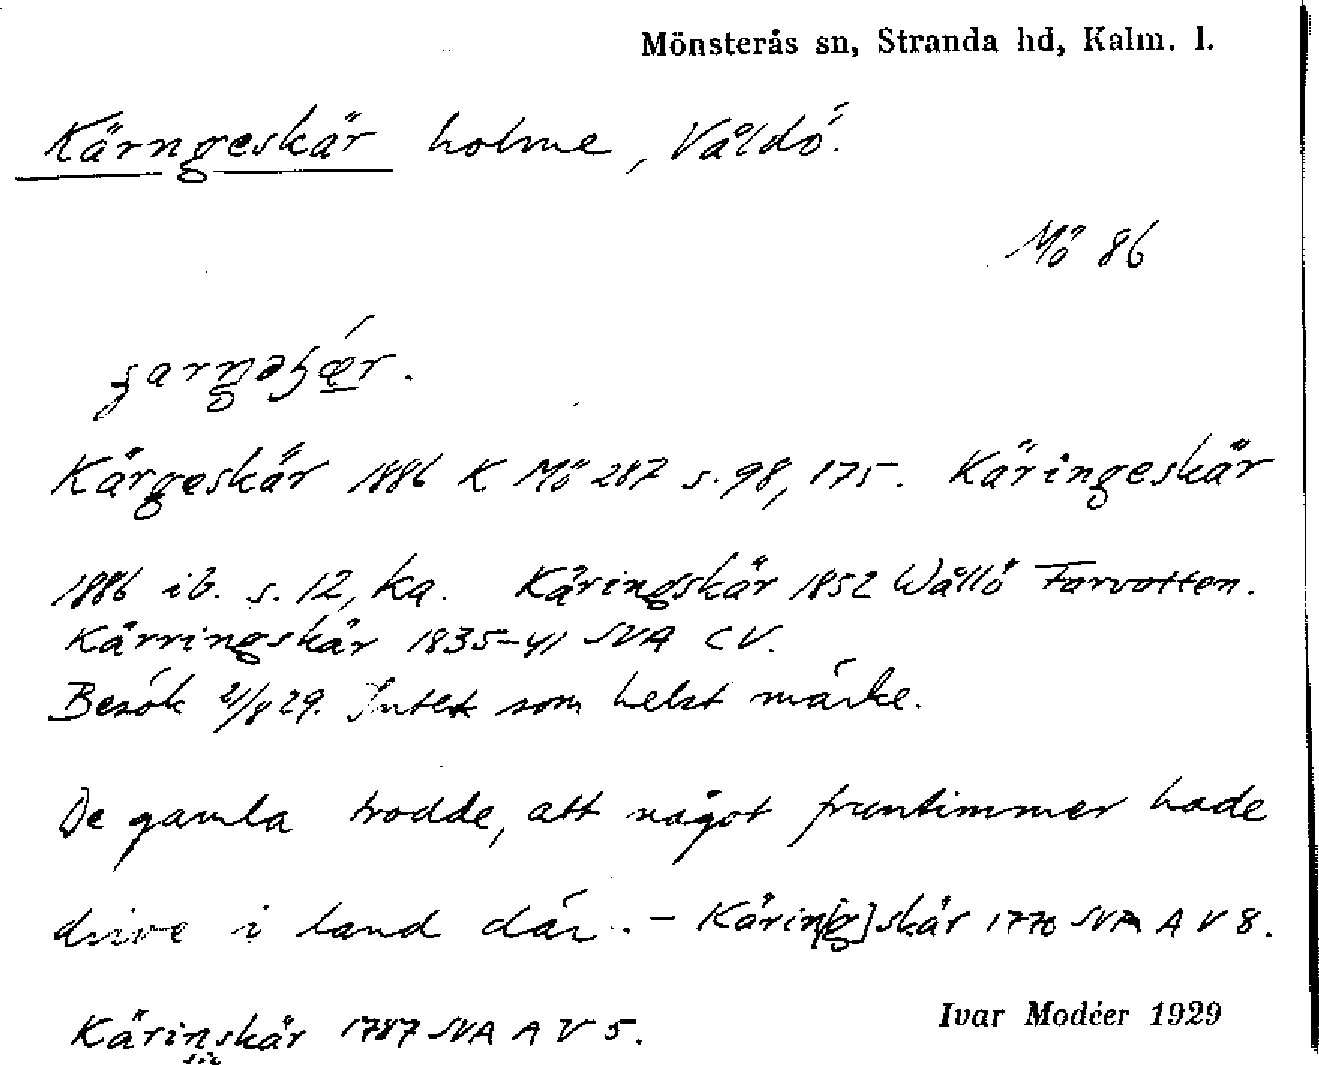 Mönsterås sn, Stranda hd, Kalm. l.
Kärngeskär holme, Våldö.
Mö 86
Kärgeskär 1886 K Mö 287 s. 98, 175. Käringeskär
1886 ib. s. 12, ka. Käringskär 1852 Wållö Farvatten.
Kärringskär 1835-41 SVA C V.
Besök 21/8 29. Intet som helst märke.
De gamla trodde, att något fruntimmer hade
drive i land där. - Kärin[g]skär 1770 SVA A V 8.
Kärinskär 1787 SVA A V 5.
sic
Ivar Modéer 1929